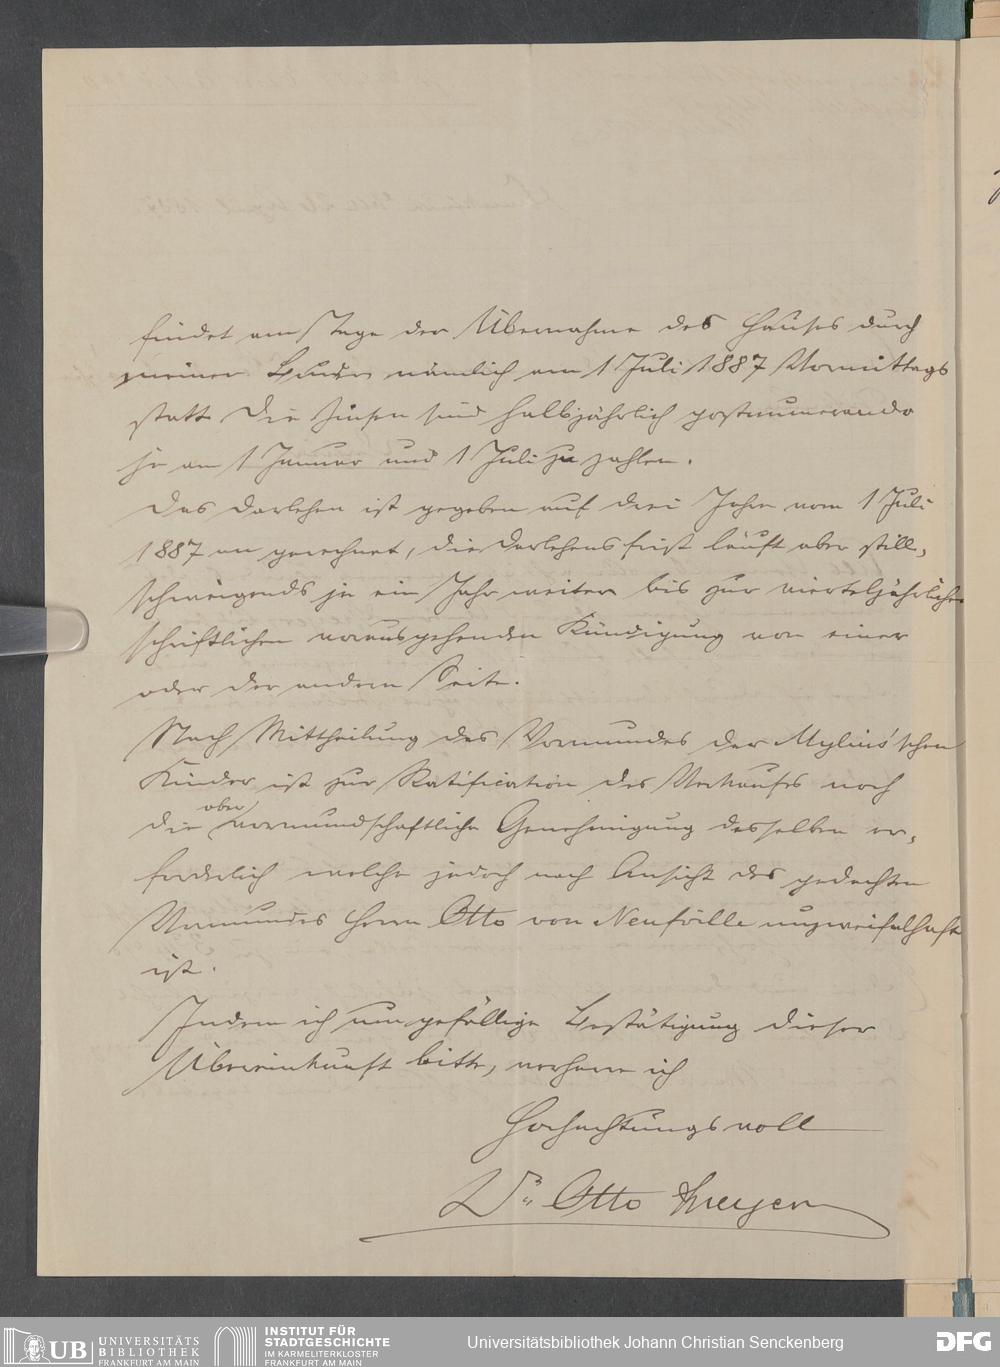 findet am Tage der Übernahme des Hauses durch
meinen Bruder nämlich am 1 Juli 1887 Vormittags
statt. Die Zinsen sind halbjährlich postnumerando
je am 1 Januar und 1 Juli zu zahlen.
Das Darlehen ist gegeben auf drei Jahre vom 1 Juli
1887 an gerechnet, die Darlehensfrist läuft aber still-
schweigends je ein Jahr weiter bis zur vierteljährlichen
schriftlichen vorausgehenden Kündigung von einer
oder der andern Seite.
Nach Mittheilung des Vormundes der Mylius'schen
Kinder ist zur Ratification des Verkaufes noch
die obervormundschaftliche Genehmigung desselben er-
forderlich welche jedoch nach Ansicht des gedachten
Vormundes Herrn Otto von Neufville unzweifelhaft
ist.
Indem ich um gefällige Bestätigung dieser
Übereinkunft bitte, verharre ich
Hochachtungsvoll
Dr. Otto
UB UNIVERSITÄTS
BIBLIOTHEK
FRANKFURT AM MAIN
INSTITUT FÜR
STADTGESCHICHTE
IM KARMELITERKLOSTER
FRANKFURT AM MAIN
Universitätsbibliothek Johann Christian Senckenberg
DFG